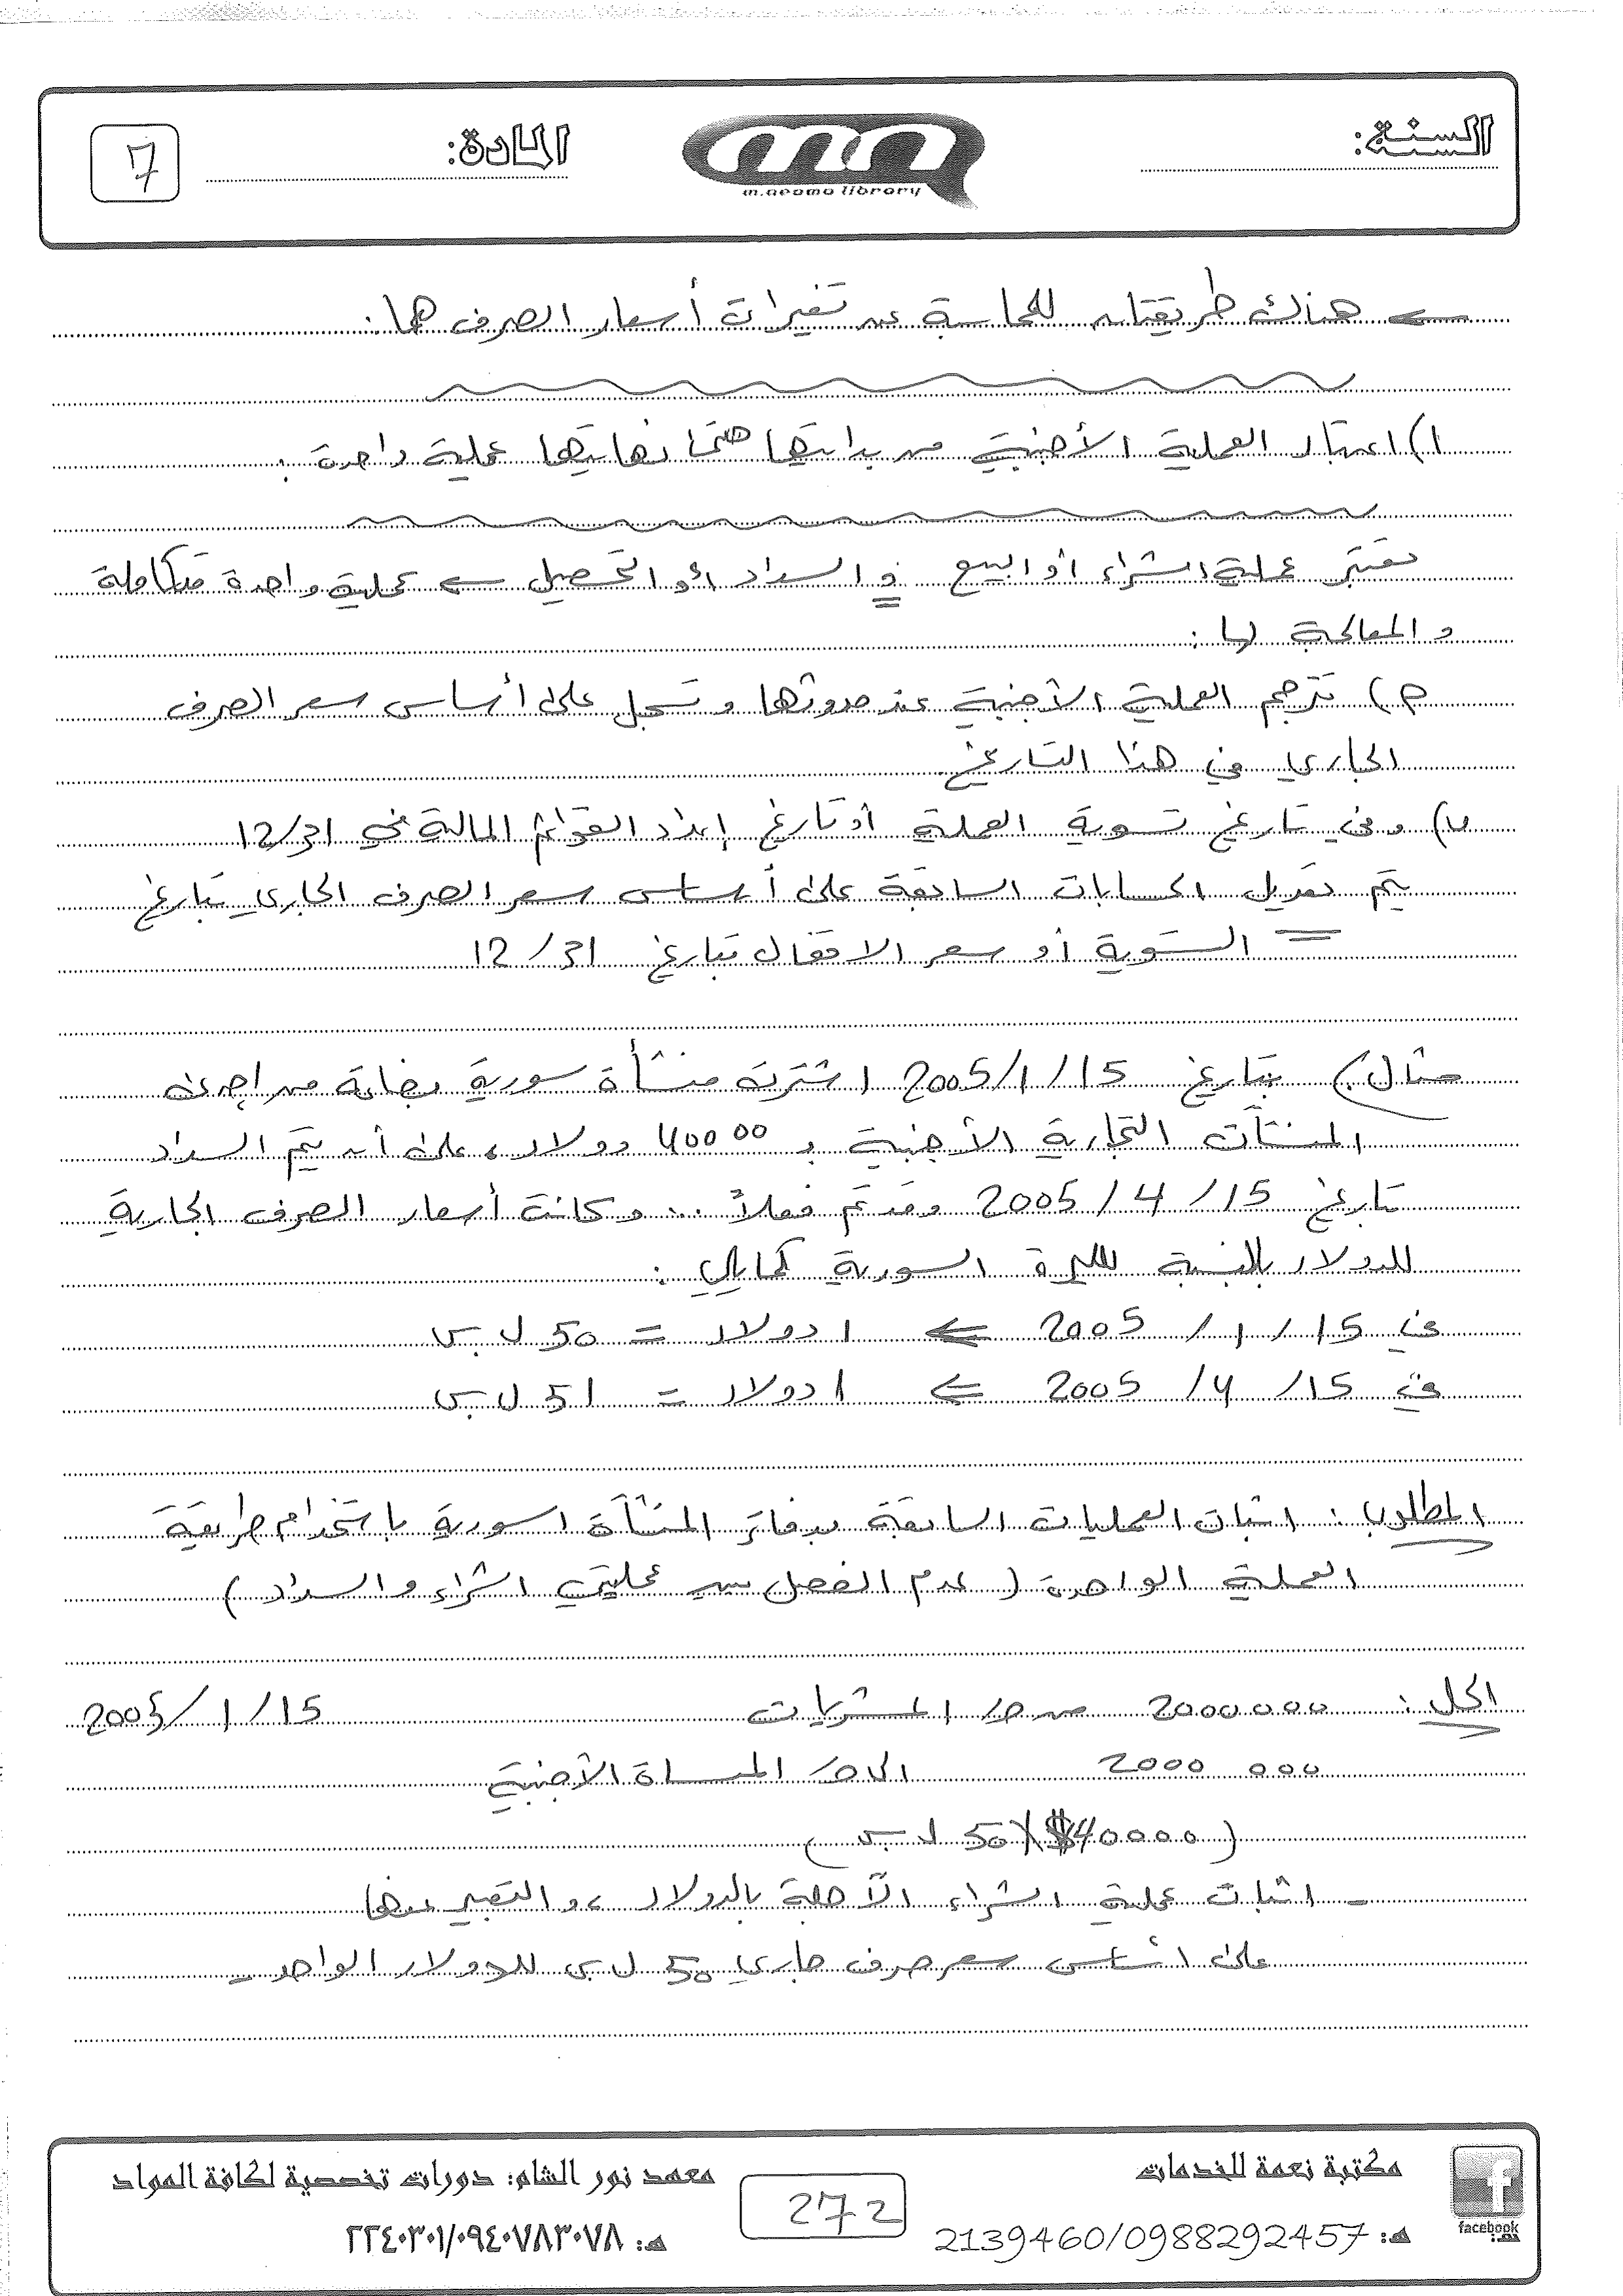 السنة:
m.neama library
المادة:
7
← هناك طريقتان للمحاسبة عن تغيرات أسعار الصرف هما:
١) اعتبار العملية الأجنبية من بدايتها حتى نهايتها عملية واحدة.
تعتبر عملية الشراء أو البيع و السداد أو التحصيل ← عملية واحدة متكاملة
و المعالجة لها:
م) تترجم العملية الأجنبية عند حدوثها و تسجل على أساس سعر الصرف
الجاري في هذا التاريخ
ب) و في تاريخ تسوية العملية أو تاريخ إعداد القوائم المالية في 12/31
يتم تعديل الحسابات السابقة على أساس سعر الصرف الجاري بتاريخ
= التسوية أو سعر الاقفال بتاريخ 12/31
مثال) بتاريخ 15/1/2005 اشترت منشأة سورية بضاعة من إحدى
المنشآت التجارية الأجنبية بـ 40000 دولار، على أن يتم السداد
تاريخ 15/4/2005 وقد تم فعلاً... و كانت أسعار الصرف الجارية
للدولار بالنسبة لليرة السورية كما يلي:
في 15/1/2005 ⇐ 1 دولار = 50 ل.س
في 15/4/2005 ⇐ 1 دولار = 51 ل.س
المطلوب: اثبات العمليات السابقة بدفاتر المنشأة السورية باستخدام طريقة
العملية الواحدة (عدم الفصل بين عمليتي الشراء و السداد)
الحل: 2000000 من حـ/ المشتريات 15/1/2005
2000000 الى حـ/ المنشأة الأجنبية
(40000$ × 50 ل.س)
- اثبات عملية الشراء الآجلة بالدولار، و التعبير عنها
على أساس سعر صرف جاري 50 ل.س للدولار الواحد -
facebook
مكتبة نعمة للخدمات
هـ: 2139460/0988292457
272
معهد نور الشام: دورات تخصصية لكافة المواد
هـ: ٢٢٤٠٣٠١/٠٩٤٠٧٨٣٠٧٨